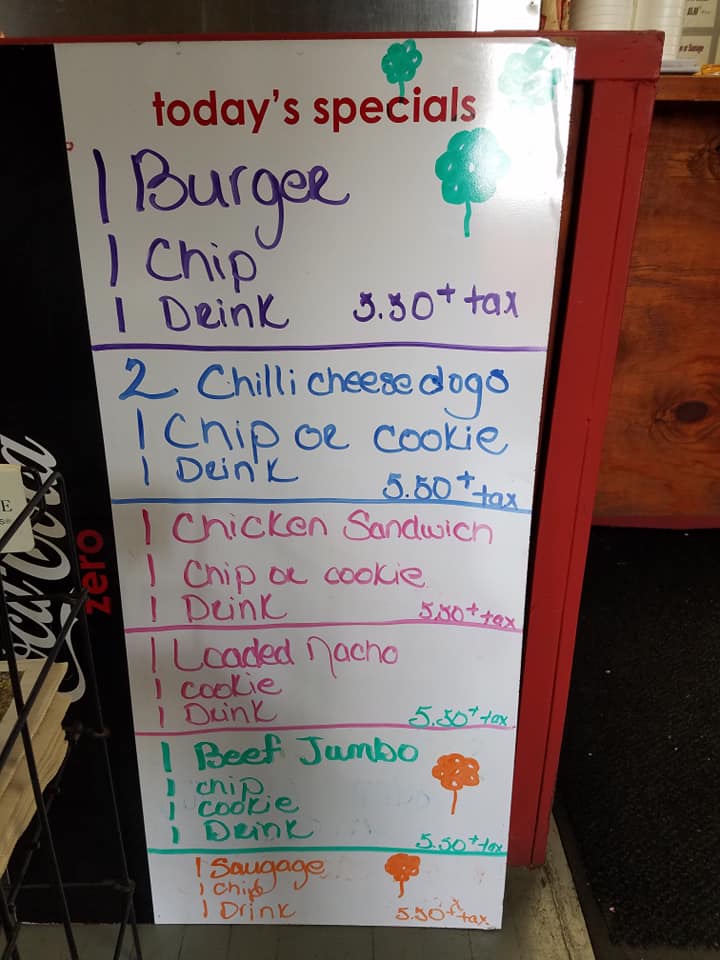 today's specials
1 Burger
1 Chip
1 Drink 5.50 + tax
2 Chilli cheese dogs
1 Chip or cookie
1 Drink 5.50 + tax
1 Chicken Sandwich
1 Chip or cookie
1 Drink 5.50 + tax
1 Loaded nacho
1 cookie
1 Drink 5.50 + tax
1 Beef Jumbo
1 chip
1 cookie
1 Drink 5.50 + tax
1 Saugage
1 Chip
1 Drink 5.50 + tax
zero